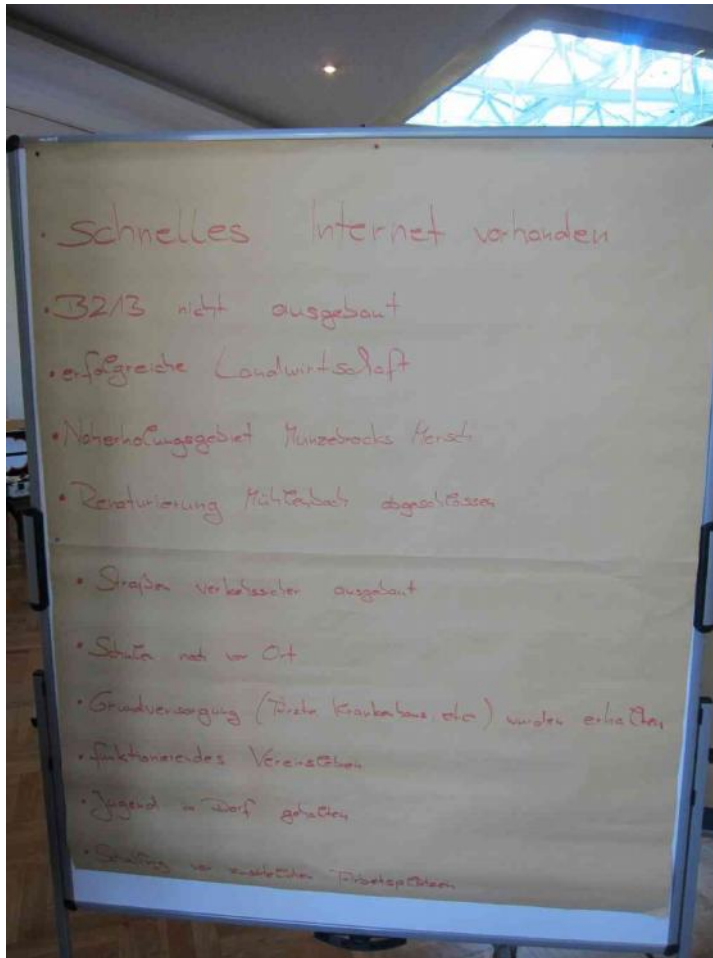 • Schnelles Internet vorhanden
• B213 nicht ausgebaut
• erfolgreiche Landwirtschaft
• Naherholungsgebiet Hunzebrocks Mersch
• Renaturierung Mühlenbach abgeschlossen
• Straßen verkehrssicher ausgebaut
• Schulen noch vor Ort
• Grundversorgung (Ärzte, Krankenhaus, etc) wurden erhalten
• funktionierendes Vereinsleben
• Jugend im Dorf gehalten
• Schaffung von Arbeitsplätzen